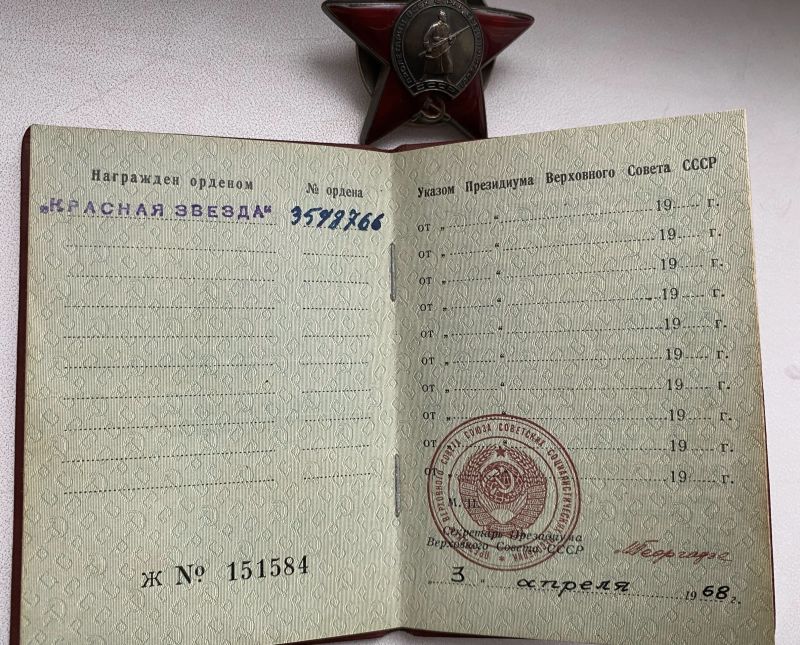 СССР
Награжден орденом
№ ордена
„КРАСНАЯ ЗВЕЗДА“
3598766
Ж № 151584
Указом Президиума Верховного Совета СССР
от „ “ 19 г.
от „ “ 19 г.
от „ “ 19 г.
от „ “ 19 г.
от „ “ 19 г.
от „ “ 19 г.
от „ “ 19 г.
от „ “ 19 г.
от „ “ 19 г.
от „ “ 19 г.
ВЕРХОВНОГО СОВЕТА СОЮЗА СОВЕТСКИХ СОЦИАЛИСТИЧЕСКИХ
М. П.
Секретарь Президиума
Верховного Совета СССР
МГеоргадзе
„ 3 “ апреля 1968 г.